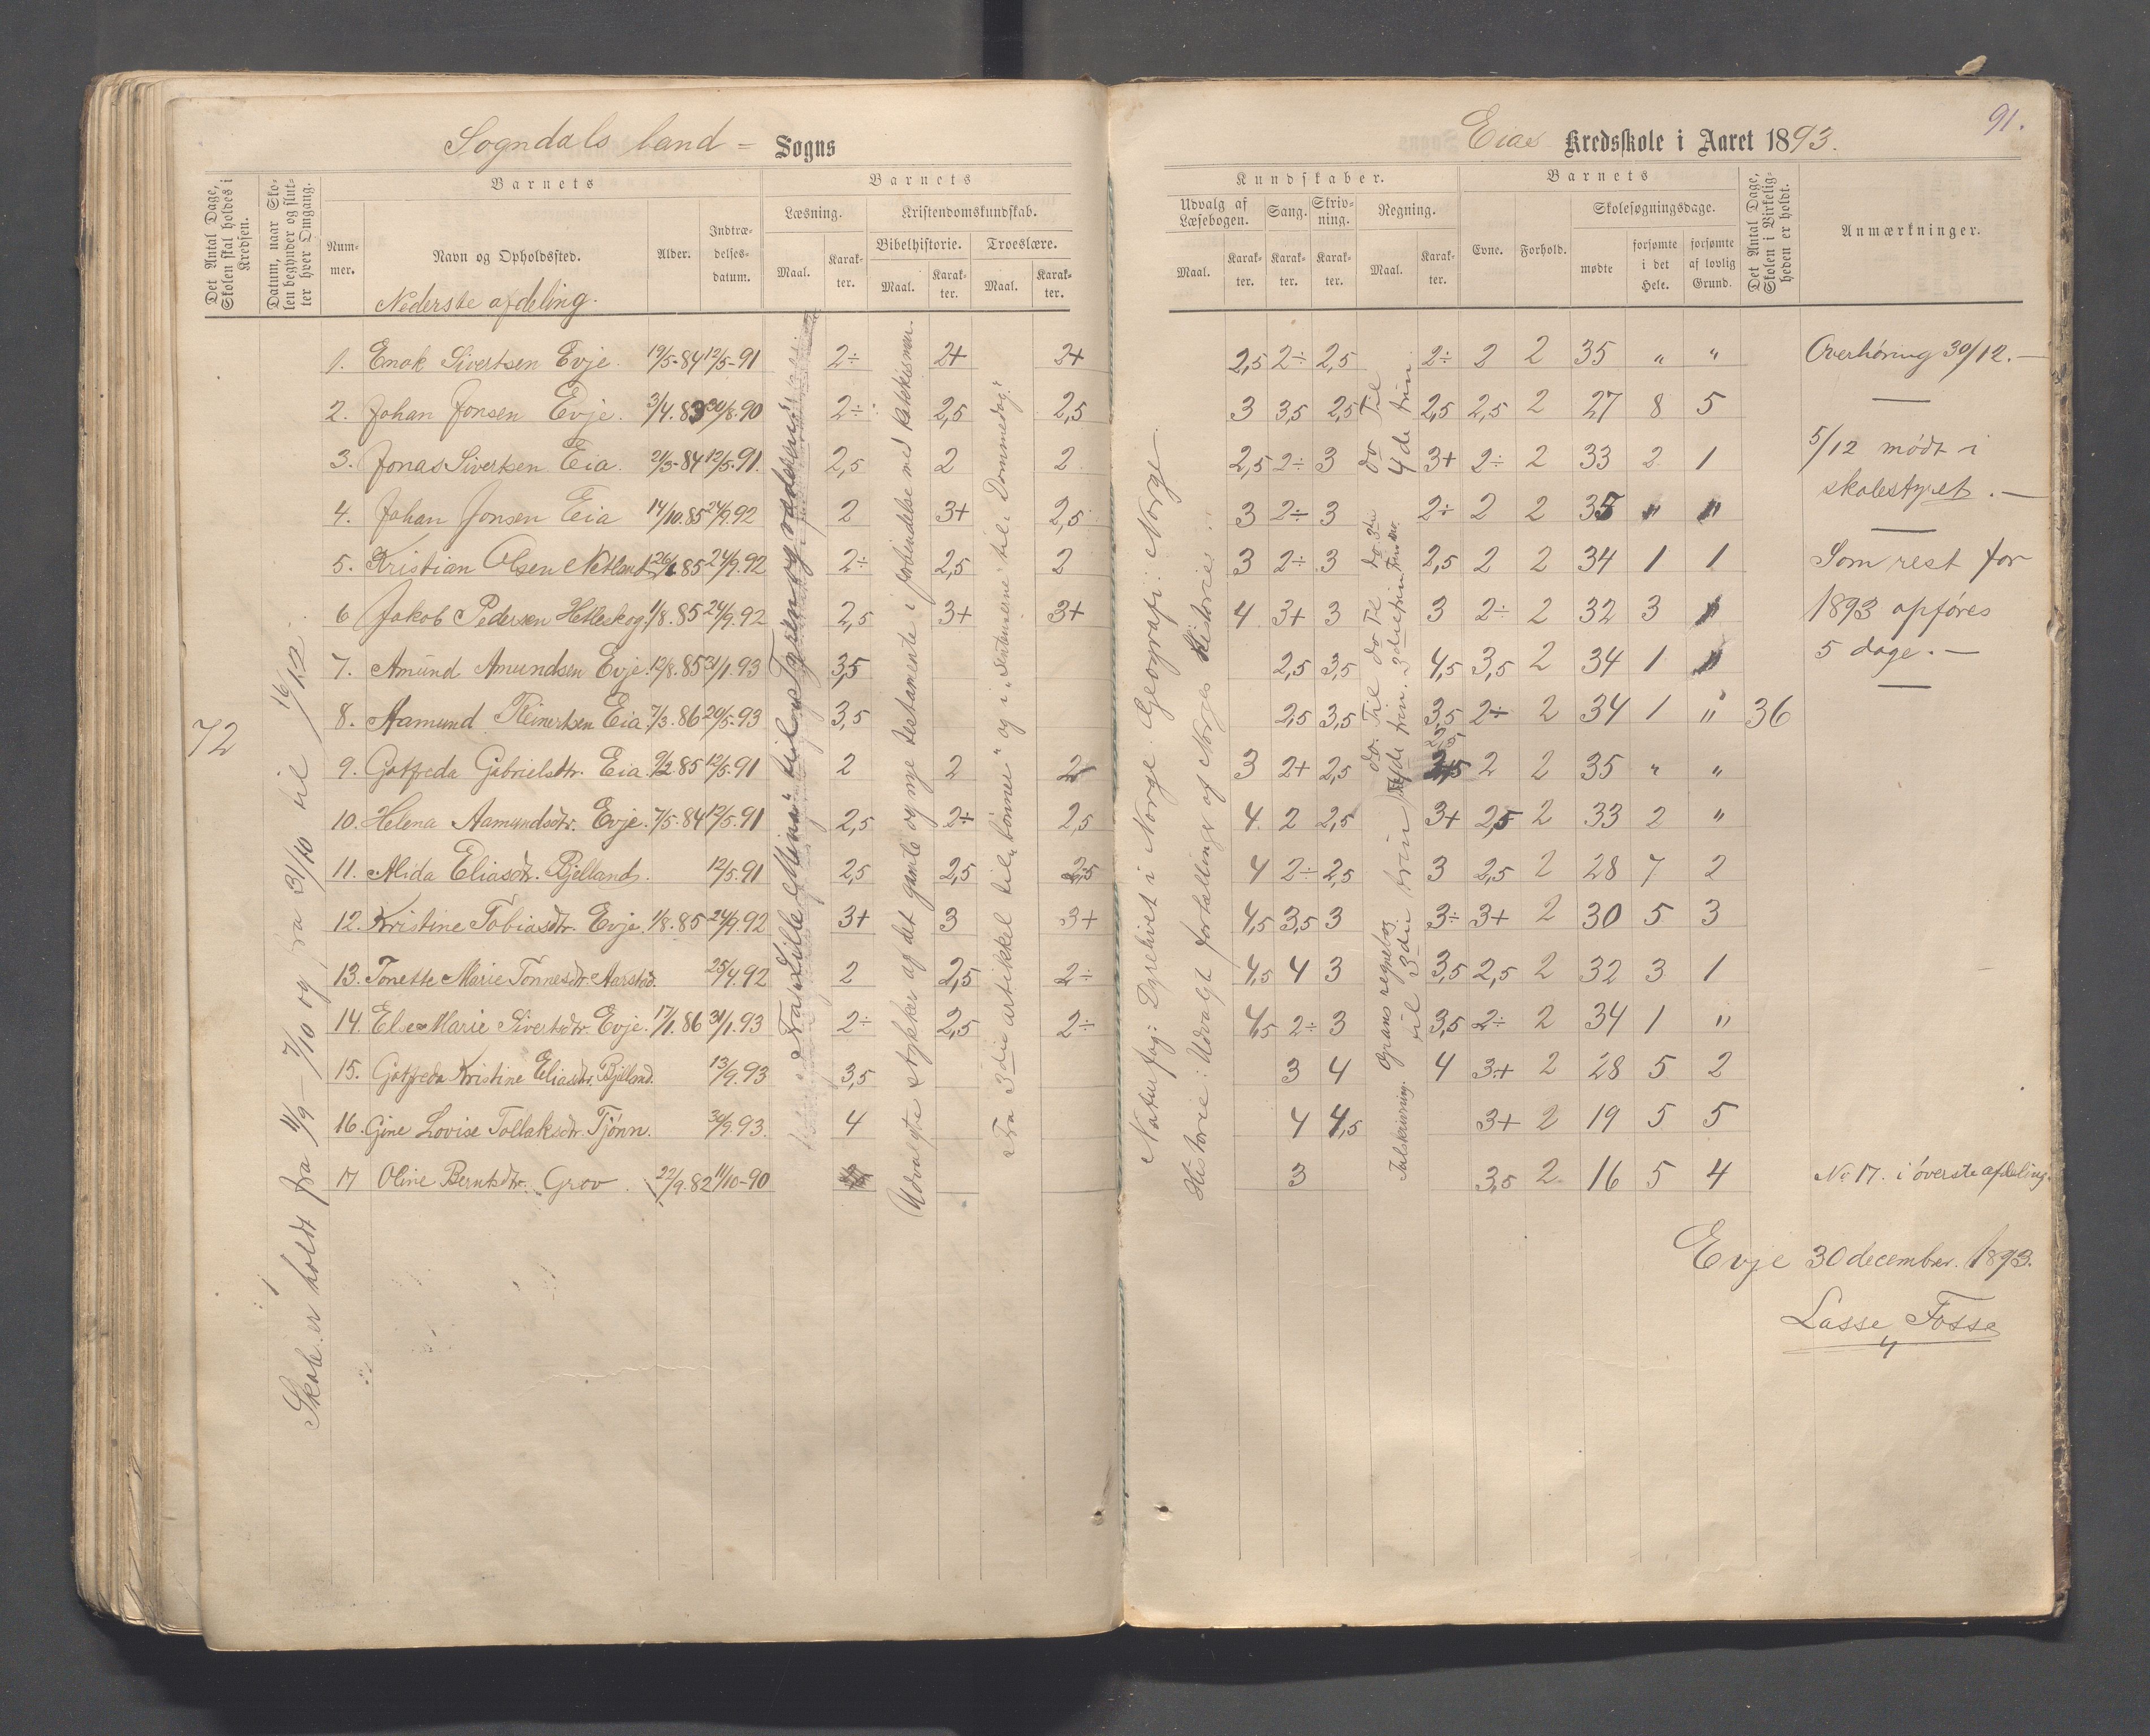 Sogndals land = Sogns
Det Antal Dage, Skolen skal holdes i Kredsen.
Datum, naar Skolen begynder og slutter hver Omgang.
Barnets
Nummer.
Navn og Opholdssted.
Alder.
Indtrædelsesdatum.
Barnets
Læsning.
Maal.
Karakter.
Kristendomskundskab.
Bibelhistorie.
Maal.
Karakter.
Troeslære.
Maal.
Karakter.
Nederste afdeling.
72
Skole er holdt fra 11/9 - 7/10 og fra 31/10 til 16/12.
1. Enok Sivertsen Evje. 19/5-84 12/5-91 2÷ 2+ 2+
2. Johan Jonsen Evje. 3/4.83 30/8.90 2÷ 2,5 2,5
3. Jonas Sivertsen Eia. 21/3-84 12/5.91. 2,5 2 2
4. Johan Jonsen Eia 14/10.85 24/9.92 2 3+ 2,5
5. Kristian Olsen Netland 26/1.85 24/9.92 2÷ 2,5 2
6 Jakob Pedersen Hetleskog. 1/8.85 24/9.92 2,5 3+ 3+
7. Amund Amundsen Evje. 12/8.85 31/1.93 3,5
8. Aamund Reinertsen Eia. 7/3.86 20/5-93 3,5
9. Gotfreda Gabrielsdtr. Eia 9/2.85 12/5.91 2 2 2
10. Helena Aamundsdtr. Evje. 7/5.84 12/5.91 2,5 2÷ 2,5
11. Alida Eliasdtr. Bjelland. 12/5.91 2,5 2,5 2,5
12. Kristine Tobiasdtr. Evje. 1/8.85 24/9.92 3+ 3 3+
13. Tonette Marie Tønnesdtr. Aarstad. 25/4.92 2 2,5 2÷
14. Else Marie Sivertsdtr. Evje. 17/1.86 31/1.93 2÷ 2,5 2÷
15. Gotfreda Kristine Eliasdtr. Bjellnd. 13/9.93 3,5
16. Gine Lovise Tollaksdtr. Tjønn. 30/9.93. 4
17 Oline Berntsdtr. Grov. 22/9.82 11/10-90
Fra „Lille Mina" til „Tyren og vædderen"
Udvalgte stykker af det gamle og nye testamente i forbindelse med katekismen.
Fra 3die artikkel til „bønnen" og i „ til „Dommedag"
Eias Kredsskole i Aaret 1893.
91.
Kundskaber.
Udvalg af Læsebogen.
Maal.
Karakter.
Sang.
Karakter.
Skrivning.
Karakter.
Regning.
Maal.
Karakter.
Barnets
Evne.
Forhold.
Skolesøgningsdage.
mødte
forsømte i det Hele.
forsømte af lovlig Grund.
Det Antal Dage, Skolen i Virkeligheden er holdt.
Anmærkninger.
Naturfag: Dyrelivet i Norge. Geografi: Norge.
Historie: Udvalgt fortællinger af Norges Historie.
2,5 2÷ 2,5 2÷ 2 2 35 " "
3 3,5 2,5 2,5 2,5 2 27 8 5
2,5 2÷ 3 3+ 2÷ 2 33 2 1
3 2÷ 3 2÷ 2 2 35 " "
3 2÷ 3 2,5 2 2 34 1 1
4 3+ 3 3 2÷ 2 32 3 "
2,5 3,5 4,5 3,5 2 34 1 "
2,5 3,5 3,5 2÷ 2 34 1 " 36
3 2+ 2,5 2,5 2 2 35 " "
4 2 2,5 3+ 2,5 2 33 2 "
4 2÷ 2,5 3 2,5 2 28 7 2
4,5 3,5 3 3÷ 3+ 2 30 5 3
4,5 4 3 3,5 2,5 2 32 3 1
4,5 2÷ 3 3,5 2÷ 2 34 1 "
3 4 4 3+ 2 28 5 2
4 4,5 3+ 2 19 5 5
3 3,5 2 16 5 4
Talskrivning. Grans regnebog til 3die trin
do. Til 4de trin. do Til 3die trin
do Til 4de trin
Overhøring 30/12. —
5/12 mødt i
skolestyret. —
Som rest for
1893 opføres
5 dage. —
No 17. i øverste afdeling.
Evje 30 december. 1893.
Lasse Fosse